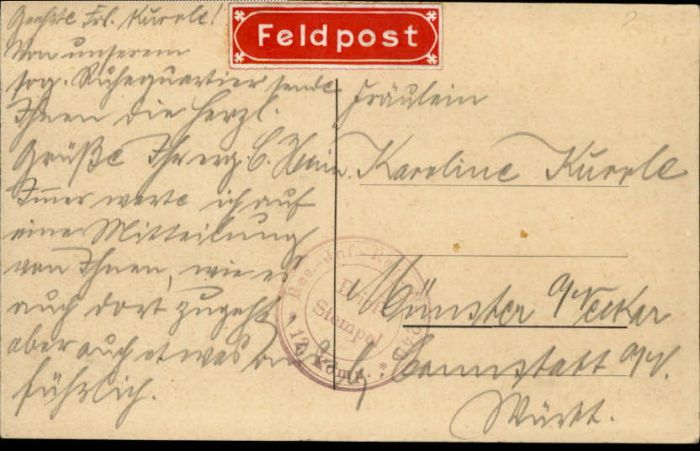 Feldpost
Geehrte Frl. Kurrle!
Von unserem
sog. Ruhequartier sende
Ihnen die herzl.
Grüße Ihr erg. C.
Immer warte ich auf
eine Mitteilung
von Ihnen, wie es
auch dort zugeht
aber auch etwas aus
führlich.
Fräulein
Karoline Kurrle
Münster a/Neckar
b/ Cannstatt a/N.
Württ.
Res.-Inf.-
Stempel
* 12. Komp. *